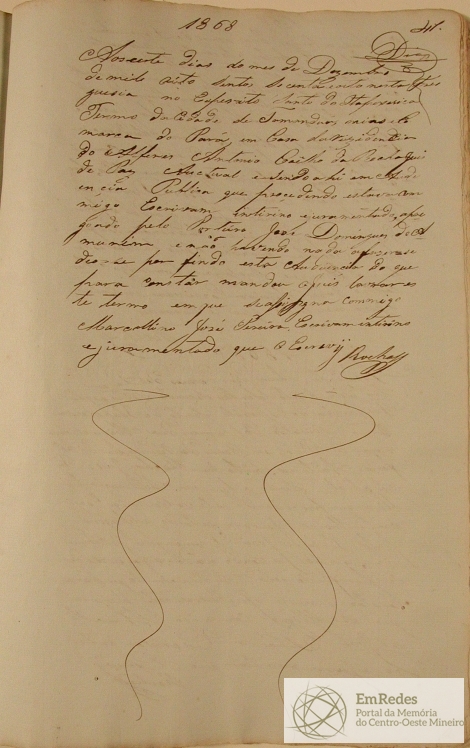 1868
41.
Dias
Aos sete dias do mes de Dezembro
de mil e oito Sentos Secenta e oito nesta Fre
guesia do Espirito Santo da Itapecerica
Termo da Cidade de Tamandua Co
marca do Pará, em Casa da rezidencia
do Alferes Antonio Coelho da Rocha Jui
de Paz Actual e sendo ahi em Audi
encia Publica que procedendo estava com
migo Escrivam interino e juramentado, apre
goado pelo José Domingues de
e não havendo nada
deo-se por finda esta Audiencia do que
para constar mandou o juis lavrar es
te termo em que se assigna commigo
Marcollino José Pereira, Escrivam interino
e juramentado que o Escrevÿ Rocha
EmRedes
Portal da Memória
do Centro-Oeste Mineiro